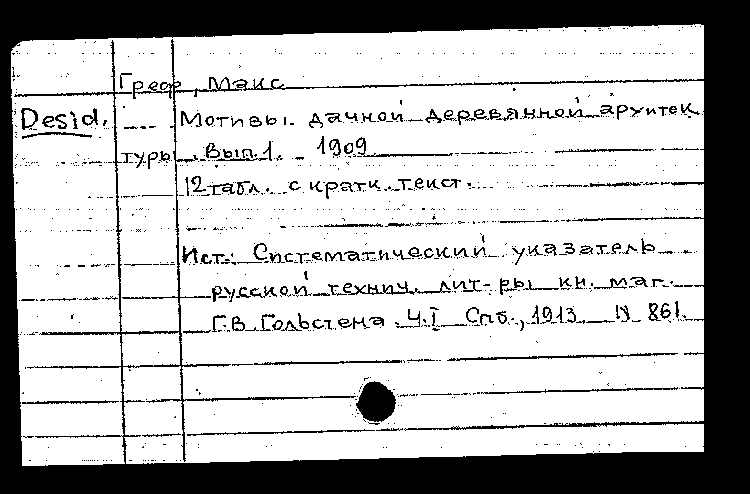 Греф, Макс
Desid. Мотивы дачной деревянной архитек
туры. Вып. 1. - 1909
12 табл. с кратк. текст.
Ист.: Систематический указатель
русской технич. лит-ры кн. маг.
Г.В. Гольстена. Ч.I Спб., 1913. № 861.